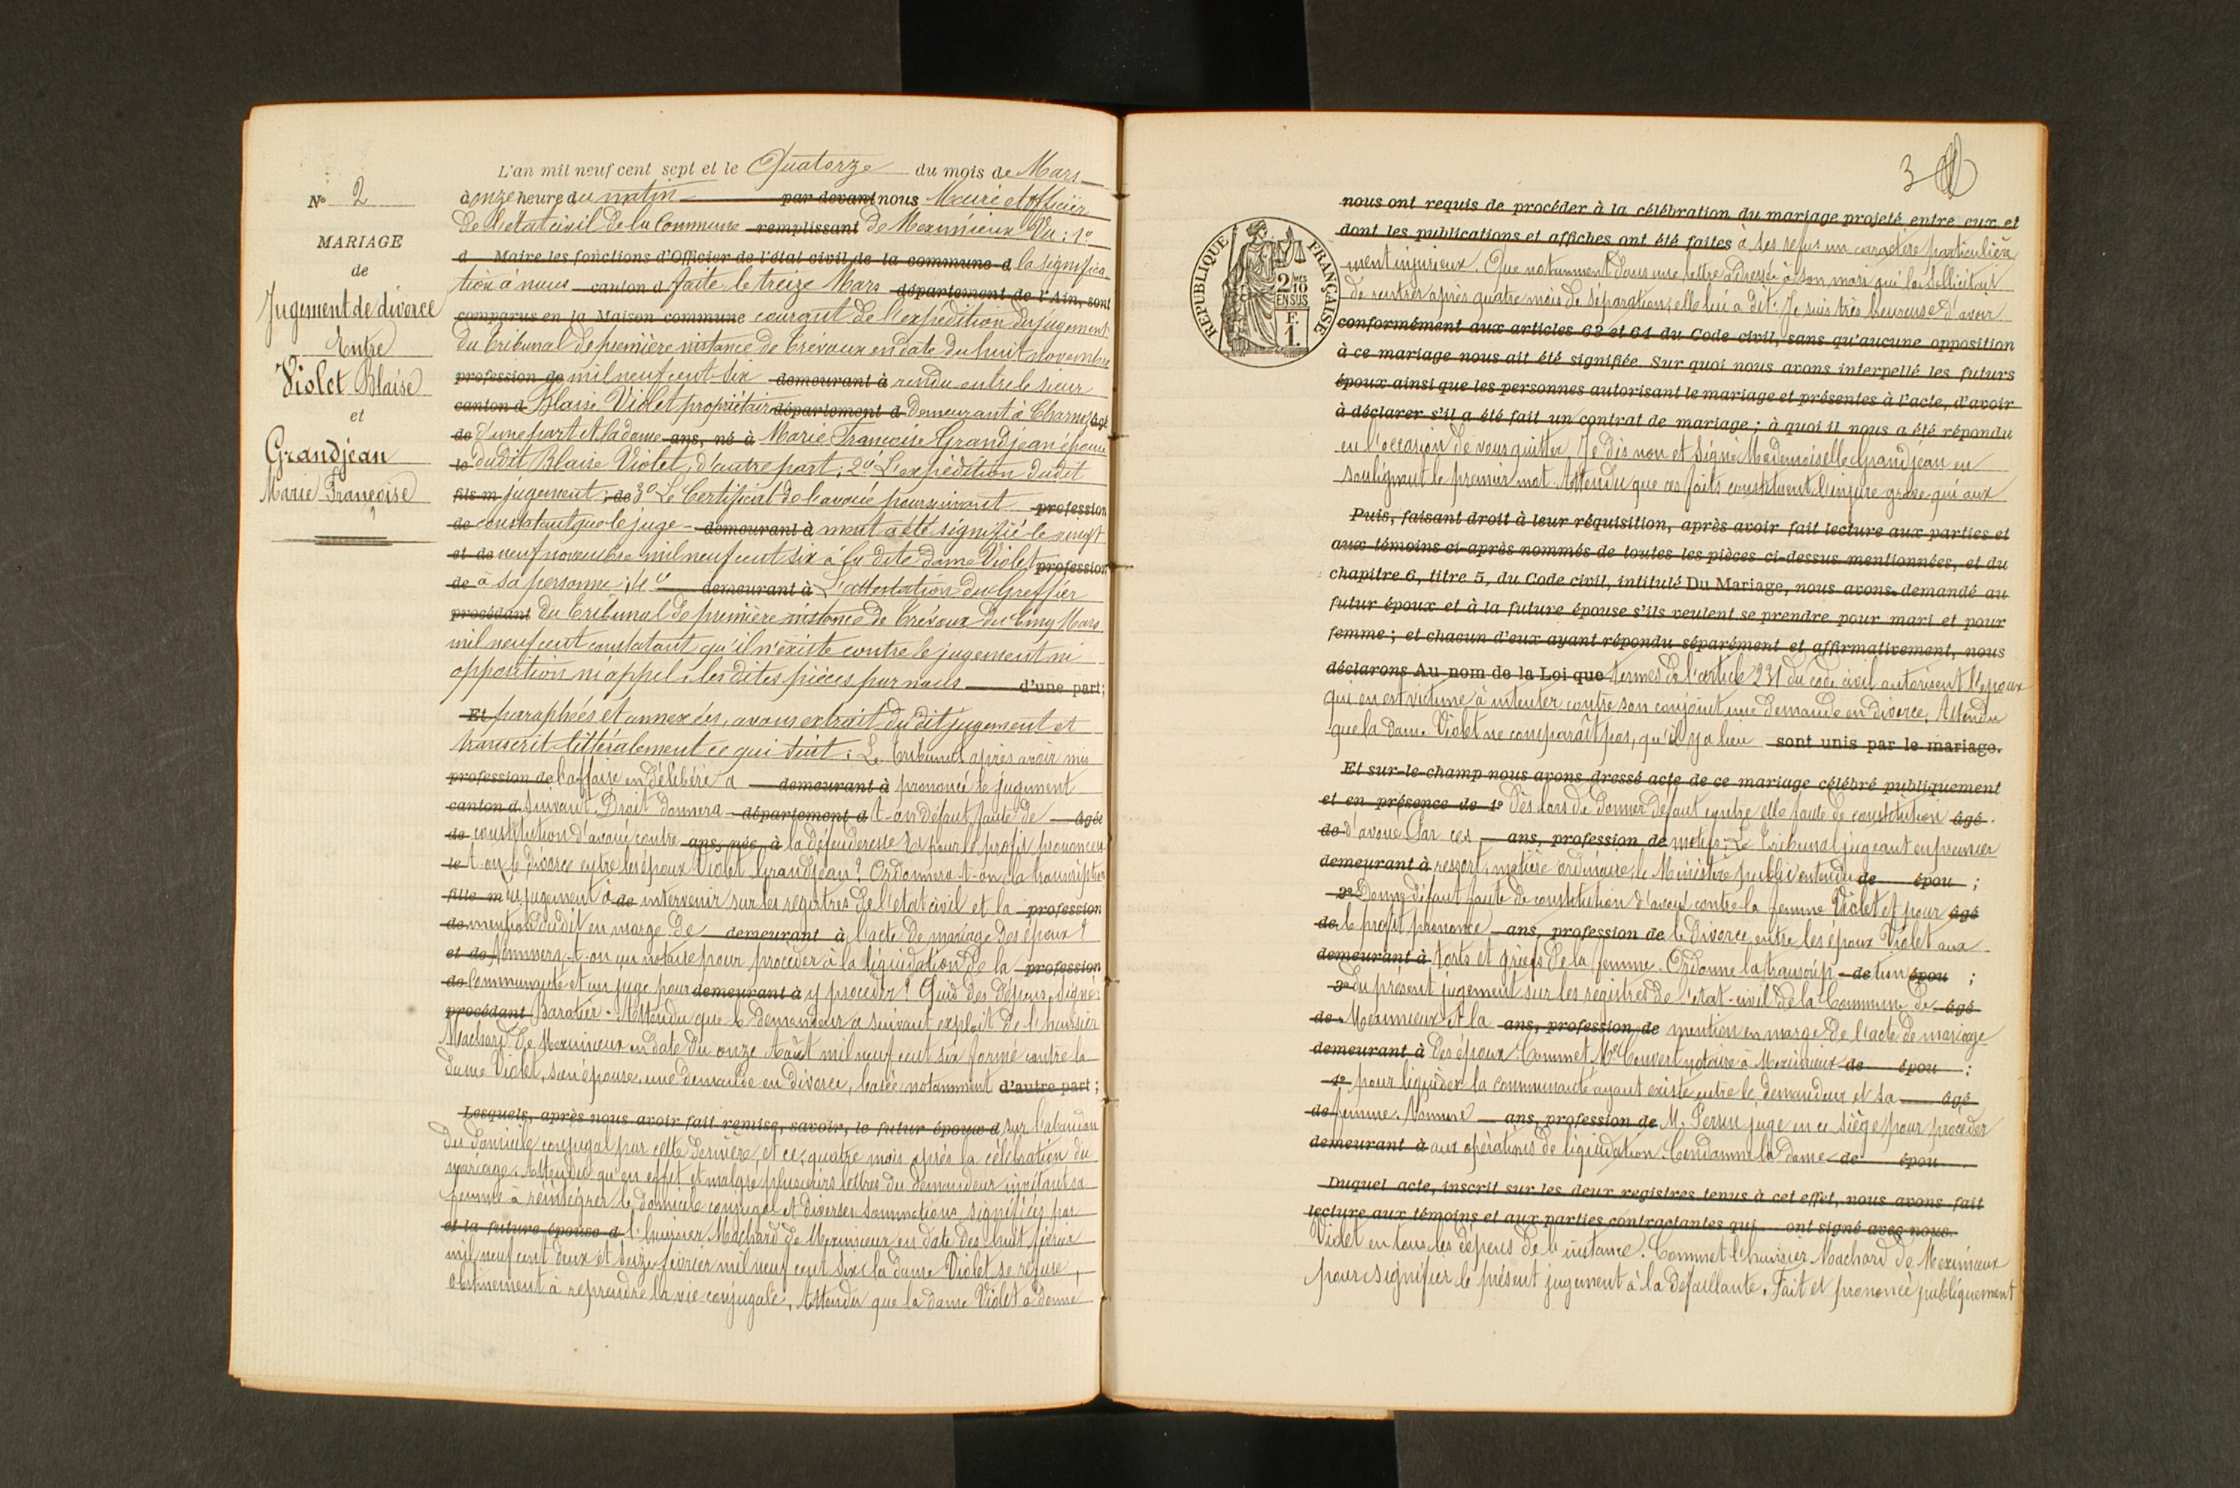 N° 2
MARIAGE
de
Jugement de divorce
Entre
Violet Blaise
et
Grandjean
Marie Françoise
L'an mil neuf cent sept et le Quatorze du mois de Mars
à onze heure du matin par devant nous Maire et officier
de l'état civil de la Commune remplissant de Meximieux Vu : 1°
d Maire les fonctions d'Officier de l'état civil de la commune d la significa-
tion à nous canton d faite le treize Mars département de l'Ain, sont
comparus en la Maison commune courant de l'expédition du jugement
du Tribunal de première instance de Trévoux en date du huit novembre
profession de mil neuf cent six demeurant à rendu entre le sieur
canton d Blaise Violet propriétaire département d demeurant à Charnoz âgé
de d'une part et la dame ans, né à Marie Françoise Grandjean épouse
le dudit Blaise Violet, d'autre part ; 2° L'expédition dudit
fils m jugement ; de 3° Le Certificat de l'avoué poursuivant profession
de constatant que le juge- demeurant à ment a été signifié le vingt
et de neuf novembre mil neuf cent six à la dite dame Violet profession
de à sa personne ; 4° demeurant à L'attestation du Greffier
procédant du Tribunal de première instance de Trévoux du Cinq Mars
mil neuf cent constatant qu'il n'existe contre le jugement ni
opposition ni appel ; les dites pièces par nous d'une part ;
Et paraphées et annexées, avons extrait dudit jugement et
transcrit littéralement ce qui suit : Le Tribunal après avoir mis
profession de l'affaire en délibéré a demeurant à prononcé le jugement
canton d suivant Droit donnera département d t-on défaut faute de âgée
de constitution d'avoué contre ans, née à la défenderesse Et pour le profit prononcera
le t-on le divorce entre les époux Violet Grandjean ? Ordonnera-t-on la transcription
fille m du jugement à de intervenir sur les registres de l'état civil et la profession
de mention dudit en marge de demeurant à l'acte de mariage des époux ?
et de Nommera-t-on un notaire pour procéder à la liquidation de la profession
de Communauté et un juge pour demeurant à y procéder ? Quid des dépens, signé :
procédant Baratier. Attendu que le demandeur a suivant exploit de l'huissier
Machard de Meximieux en date du onze Août mil neuf cent six formé contre la
dame Violet, son épouse, une demande en divorce, basée notamment d'autre part ;
Lesquels, après nous avoir fait remise, savoir, le futur époux d sur l'abandon
du domicile conjugal par cette dernière, et ce, quatre mois après la célébration du
mariage. Attendu qu'en effet et malgré plusieurs lettres du demandeur invitant sa
femme à réintégrer le domicile conjugal et diverses sommations signifiées par
et la future épouse d l'huissier Machard de Meximieux en date des huit février
mil neuf cent deux et seize février mil neuf cent six la dame Violet se refuse
obstinément à reprendre la vie conjugale. Attendu que la dame Violet a donné
3
REPUBLIQUE FRANÇAISE
2/10
EN SUS
F.
1.
nous ont requis de procéder à la célébration du mariage projeté entre eux et
dont les publications et affiches ont été faites à ses refus un caractère particulière-
ment injurieux. Que notamment dans une lettre adressée à son mari qui la sollicitait
de rentrer après quatre mois de séparation, elle lui a dit : Je suis très heureuse d'avoir
conformément aux articles 63 et 64 du Code civil, sans qu'aucune opposition
à ce mariage nous ait été signifiée. Sur quoi nous avons interpellé les futurs
époux ainsi que les personnes autorisant le mariage et présentes à l'acte, d'avoir
à déclarer s'il a été fait un contrat de mariage ; à quoi il nous a été répondu
eu l'occasion de vous quitter, Je dis non et signé Mademoiselle Grandjean en
soulignant le premier mot. Attendu que ces faits constituent l'injure grave qui aux
Puis, faisant droit à leur réquisition, après avoir fait lecture aux parties et
aux témoins ci-après nommés de toutes les pièces ci-dessus mentionnées, et du
chapitre 6, titre 5, du Code civil, intitulé Du Mariage, nous avons demandé au
futur époux et à la future épouse s'ils veulent se prendre pour mari et pour
femme ; et chacun d'eux ayant répondu séparément et affirmativement, nous
déclarons Au nom de la Loi que termes de l'article 231 du code civil autorisent l'époux
qui en est victime à intenter contre son conjoint une demande en divorce. Attendu
que la dame Violet ne comparaît pas, qu'il y a lieu sont unis par le mariage.
Et sur-le-champ nous avons dressé acte de ce mariage célébré publiquement
et en présence de 1° Dès lors de donner défaut contre elle faute de constitution âgé
de d'avoué Par ces ans, profession de motifs ; Le Tribunal jugeant en premier
demeurant à ressort, matière ordinaire, le Ministère public entendu de épou ;
2° Donne défaut faute de constitution d'avoué contre la femme Violet et pour âgé
de le profit prononce ans, profession de le divorce entre les époux Violet aux
demeurant à torts et griefs de la femme. Ordonne la transcrip- de tion épou ;
3° du présent jugement sur les registres de l'état-civil de la Commune de âgé
de Meximieux et la ans, profession de mention en marge de l'acte de mariage
demeurant à des époux Commet Me Couvert notaire à Meximieux de épou ;
4° pour liquider la communauté ayant existé entre le demandeur et sa âgé
de femme. Nomme ans, profession de M. Perrin juge en ce siège pour procéder
demeurant à aux opérations de liquidation. Condamne la dame de épou .
Duquel acte, inscrit sur les deux registres tenus à cet effet, nous avons fait
lecture aux témoins et aux parties contractantes qui ont signé avec nous.
Violet en tous les dépens de l'instance. Commet l'huissier Machard de Meximieux
pour signifier le présent jugement à la défaillante. Fait et prononcé publiquement